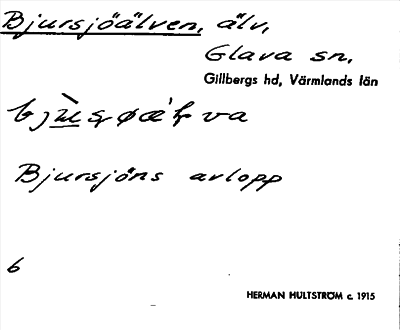 Bjursjöälven, älv,
Glava sn.
Gillbergs hd, Värmlands län
va
Bjursjöns avlopp
6
HERMAN HULTSTRÖM c. 1915